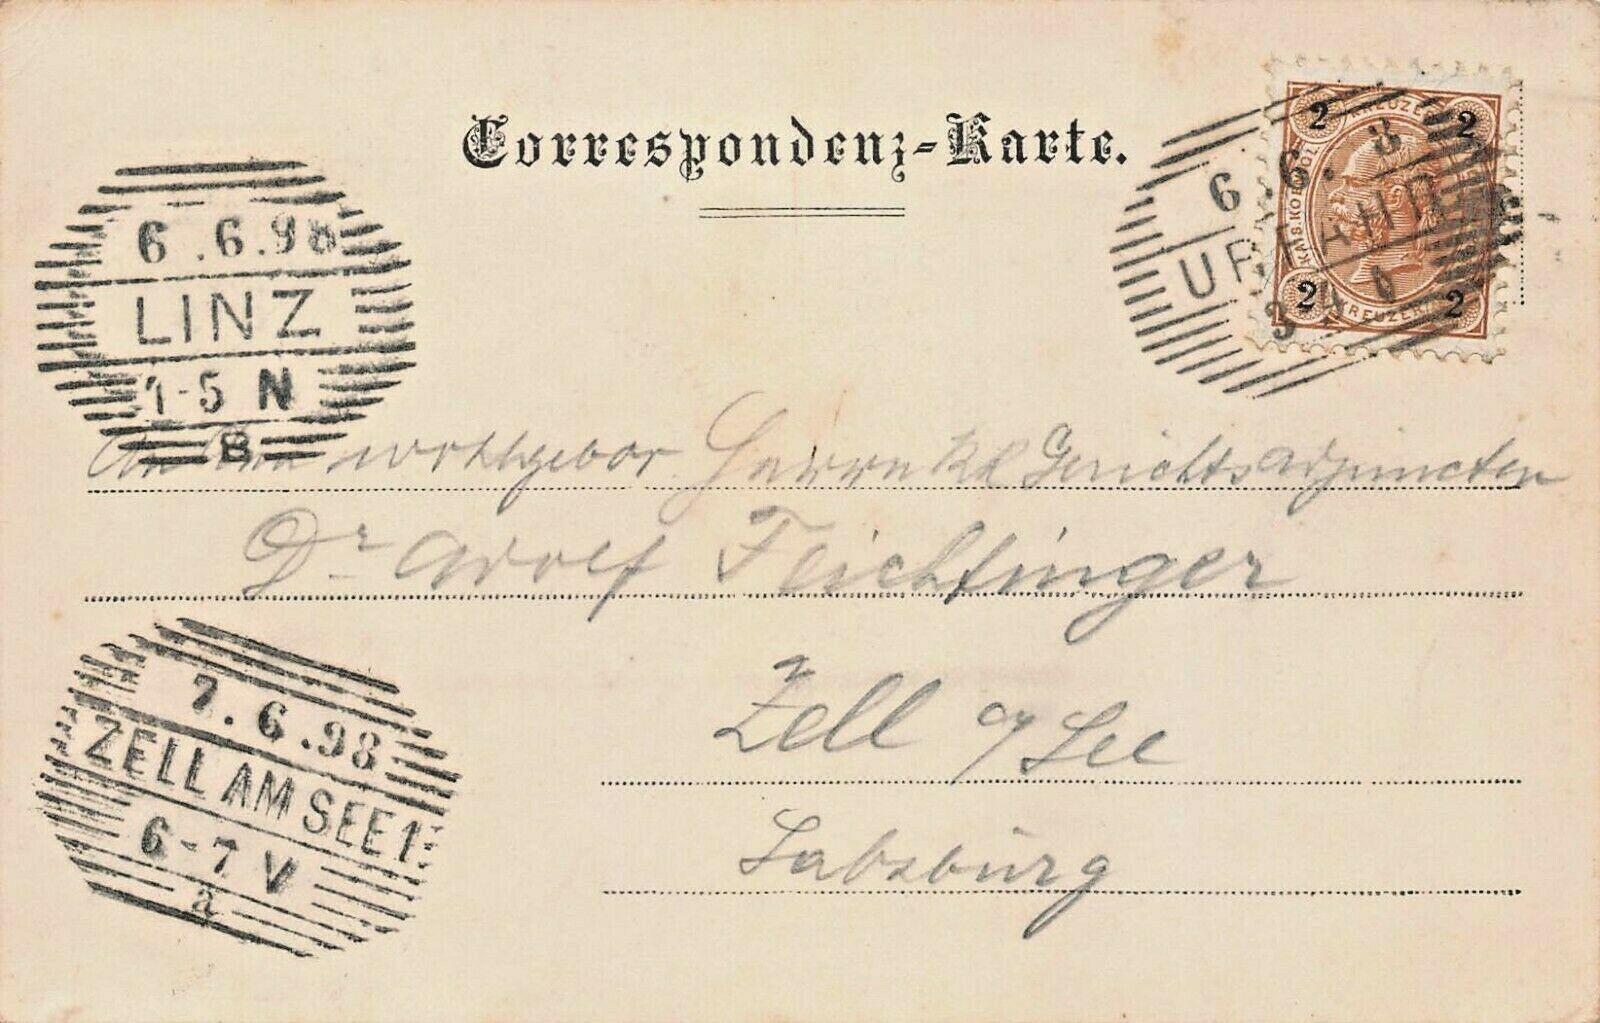 Correspondenz-Karte.
2 KREUZER 2
KAIS. KÖ
2 KREUZER 2
6.6.
URFAHR
6.6.98
LINZ
1-5 N
B
wohlgebor Herrn kk Gerichtsadjuncten
Dr Adolf Feichtinger
Zell a/See
Salzburg
7.6.98
ZELL AM SEE 1
6-7 V
a